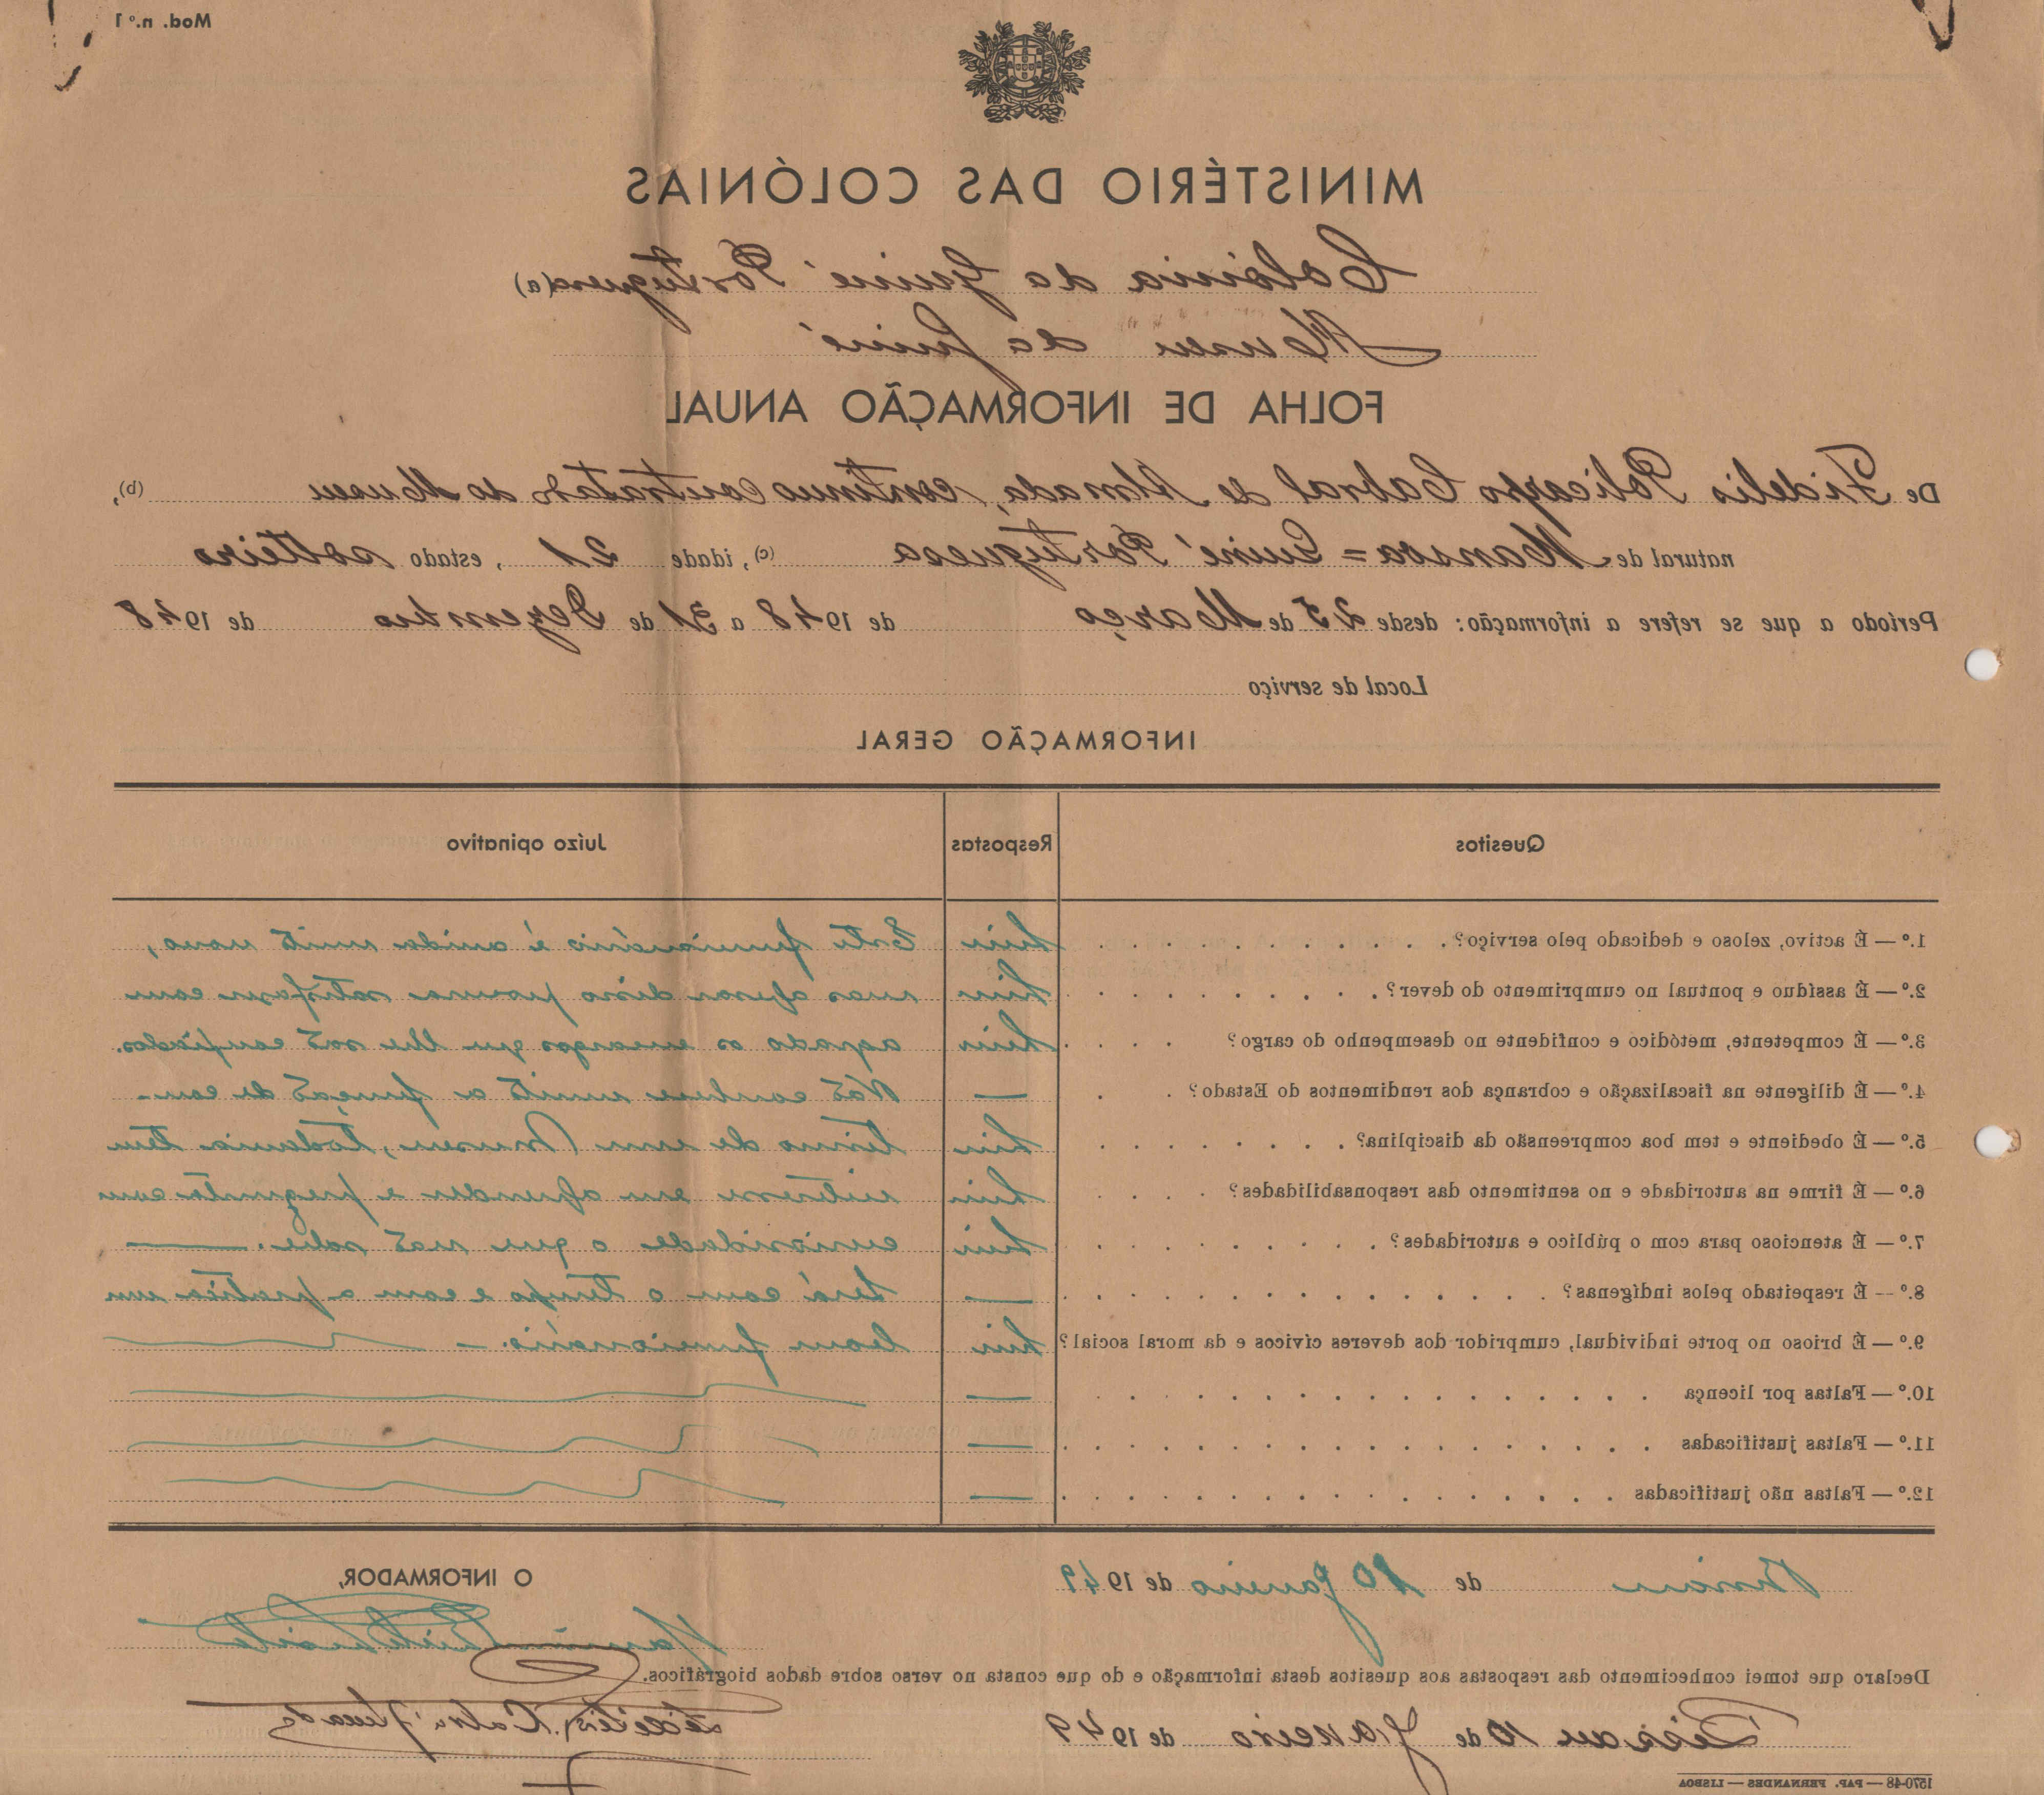 Mod. n.º 1
MINISTÉRIO DAS COLÓNIAS
Colónia da Guiné Portuguesa (a)
Museu da Guiné
FOLHA DE INFORMAÇÃO ANUAL
De Fidelis Policarpo Cabral de Almada, contínuo contratado do Museu (b),
natural de Mansoa = Guiné Portuguesa (c), idade 21, estado solteiro
Período a que se refere a informação: desde 25 de Março de 1948 a 31 de Dezembro de 1948
Local de serviço
INFORMAÇÃO GERAL
Quesitos Respostas Juízo opinativo
1.º — É activo, zeloso e dedicado pelo serviço? Sim Este funcionário é ainda muito novo,
2.º — É assíduo e pontual no cumprimento do dever? Sim mas apesar disso procura satisfazer com
3.º — É competente, metódico e confidente no desempenho do cargo? Sim agrado os encargos que lhe são confiados.
4.º — É diligente na fiscalização e cobrança dos rendimentos do Estado? — Não conhece muito a função de con-
5.º — É obediente e tem boa compreensão da disciplina? Sim tínuo de um Museu, todavia tem
6.º — É firme na autoridade e no sentimento das responsabilidades? Sim interesse em aprender e pergunta com
7.º — É atencioso para com o público e autoridades? Sim curiosidade o que não sabe. —
8.º — É respeitado pelos indígenas? — Será com o tempo e com a prática um
9.º — É brioso no porte individual, cumpridor dos deveres cívicos e da moral social? Sim bom funcionário. —
10.º — Faltas por licença —
11.º — Faltas justificadas —
12.º — Faltas não justificadas —
Bissau de 10 Janeiro de 1949 O INFORMADOR,
Declaro que tomei conhecimento das respostas aos quesitos desta informação e do que consta no verso sobre dados biográficos.
Bissau 10 de Janeiro de 1949 Fidélis Cabral Almada
1570-48 — PAP. FERNANDES — LISBOA